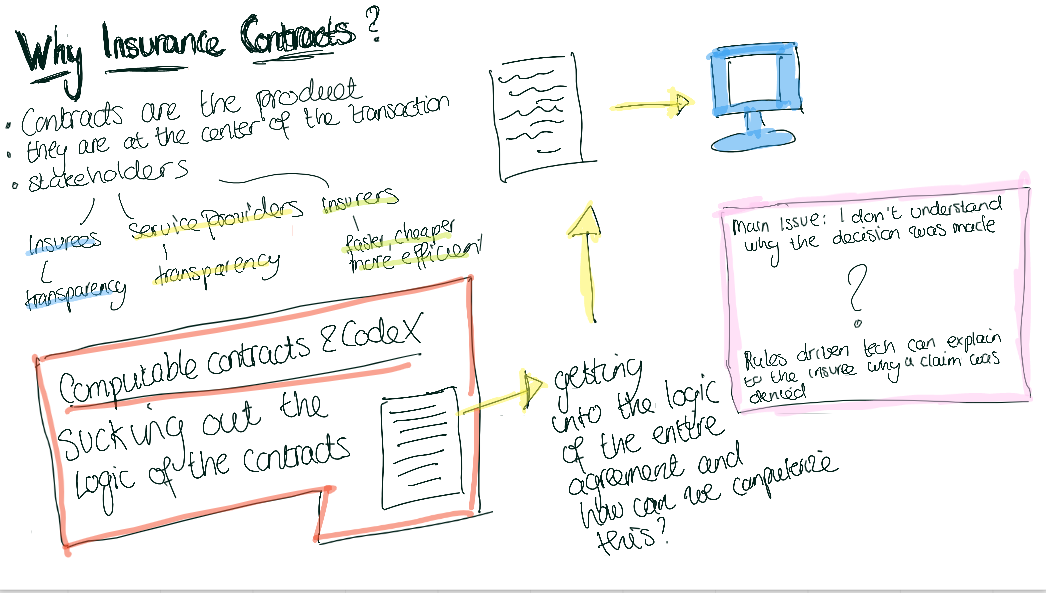 Why Insurance Contracts?
• Contracts are the product
• they are at the center of the transaction
• stakeholders
Insurees
transparency
Service Providers
transparency
insurers
faster, cheaper
more efficient
Main Issue: I don't understand
why the decision was made
?
Rules driven tech can explain
to the insuree why a claim was
denied
Computable contracts & CodeX
sucking out the
logic of the contracts
getting
into the logic
of the entire
agreement and
how can we computerize
this?